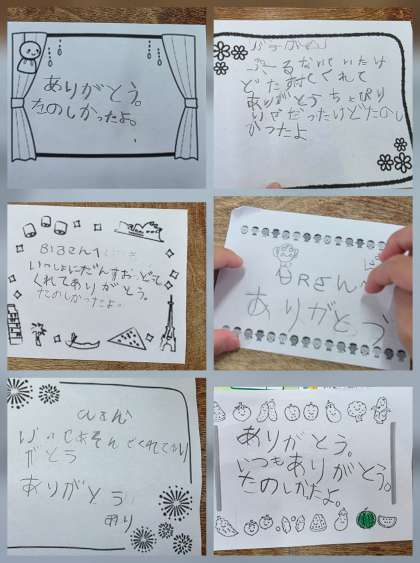 ありがとう。
たのしかったよ。
ぷーるだいていたけ
どたすけてくれて
ありがとう ちょぴり
いやだったけどたのし
かつたよ
BIBさんへ
いっしょにだんすおどって
くれてありがとう。
たのしかったよ。
Rさんへ
ありがとう
さんへ
くれてあり
がとう
ありがとう
あり
ありがとう。
いつもありがとう。
たのしかたよ。